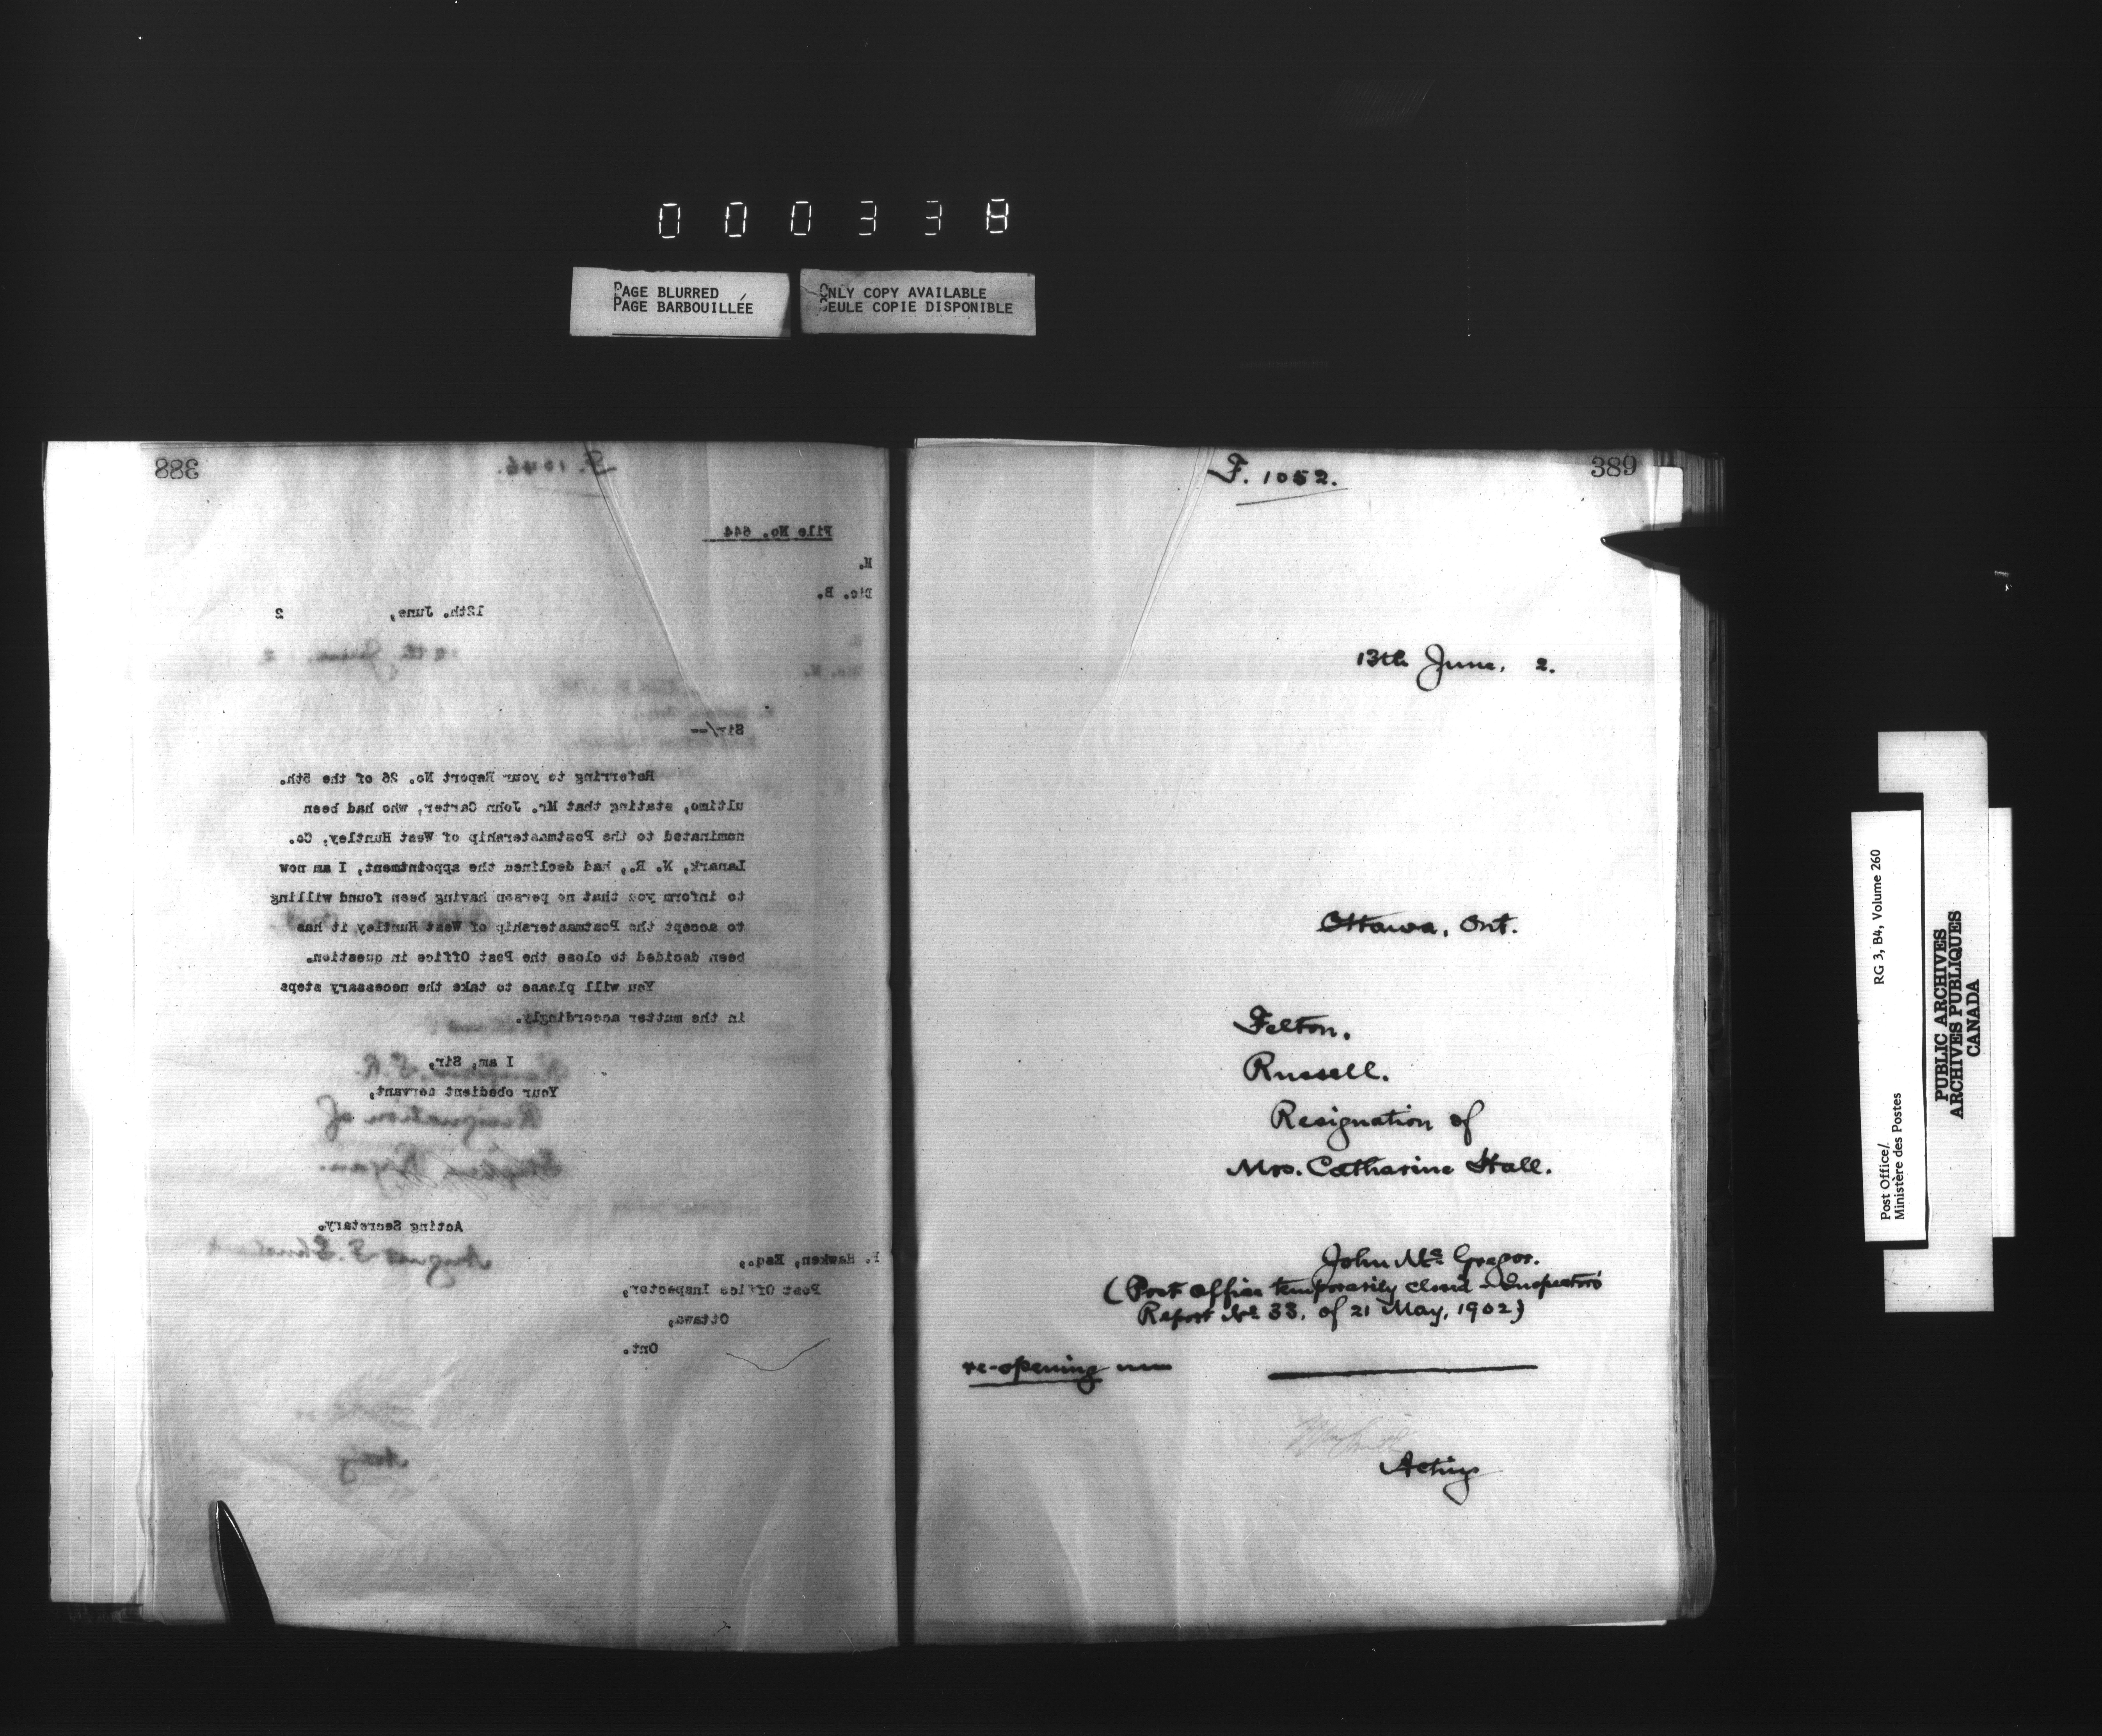 000338
PAGE BLURRED
PAGE BARBOUILLÉE
ONLY COPY AVAILABLE
SEULE COPIE DISPONIBLE
388
F. 1046.
File No. 644
M.
Dic. B.
12th. June, 2
9th June 2
Sir/--
Referring to your Report No. 26 of the 5th.
ultimo, stating that Mr. John Carter, who had been
nominated to the Postmastership of West Huntley, Co.
Lanark, N. R., had declined the appointment, I am now
to inform you that no person having been found willing
to accept the Postmastership of West Huntley it has
been decided to close the Post Office in question.
You will please to take the necessary steps
in the matter accordingly.
I am, Sir,
Your obedient servant,
Resignation of
Acting Secretary.
Hawken, Esq.,
Post Office Inspector,
Ottawa,
Ont.
Acting
389
F. 1052.
13th June, 2.
Ottawa, Ont.
Felton.
Russell.
Resignation of
Mrs. Catharine Hall.
John Mc Gregor.
(Post Office temporarily closed - Inspector's
Report No 33, of 21 May, 1902)
re-opening
Wm Smith
Acting
Post Office/ RG 3, B4, Volume 260
Ministère des Postes
PUBLIC ARCHIVES
ARCHIVES PUBLIQUES
CANADA